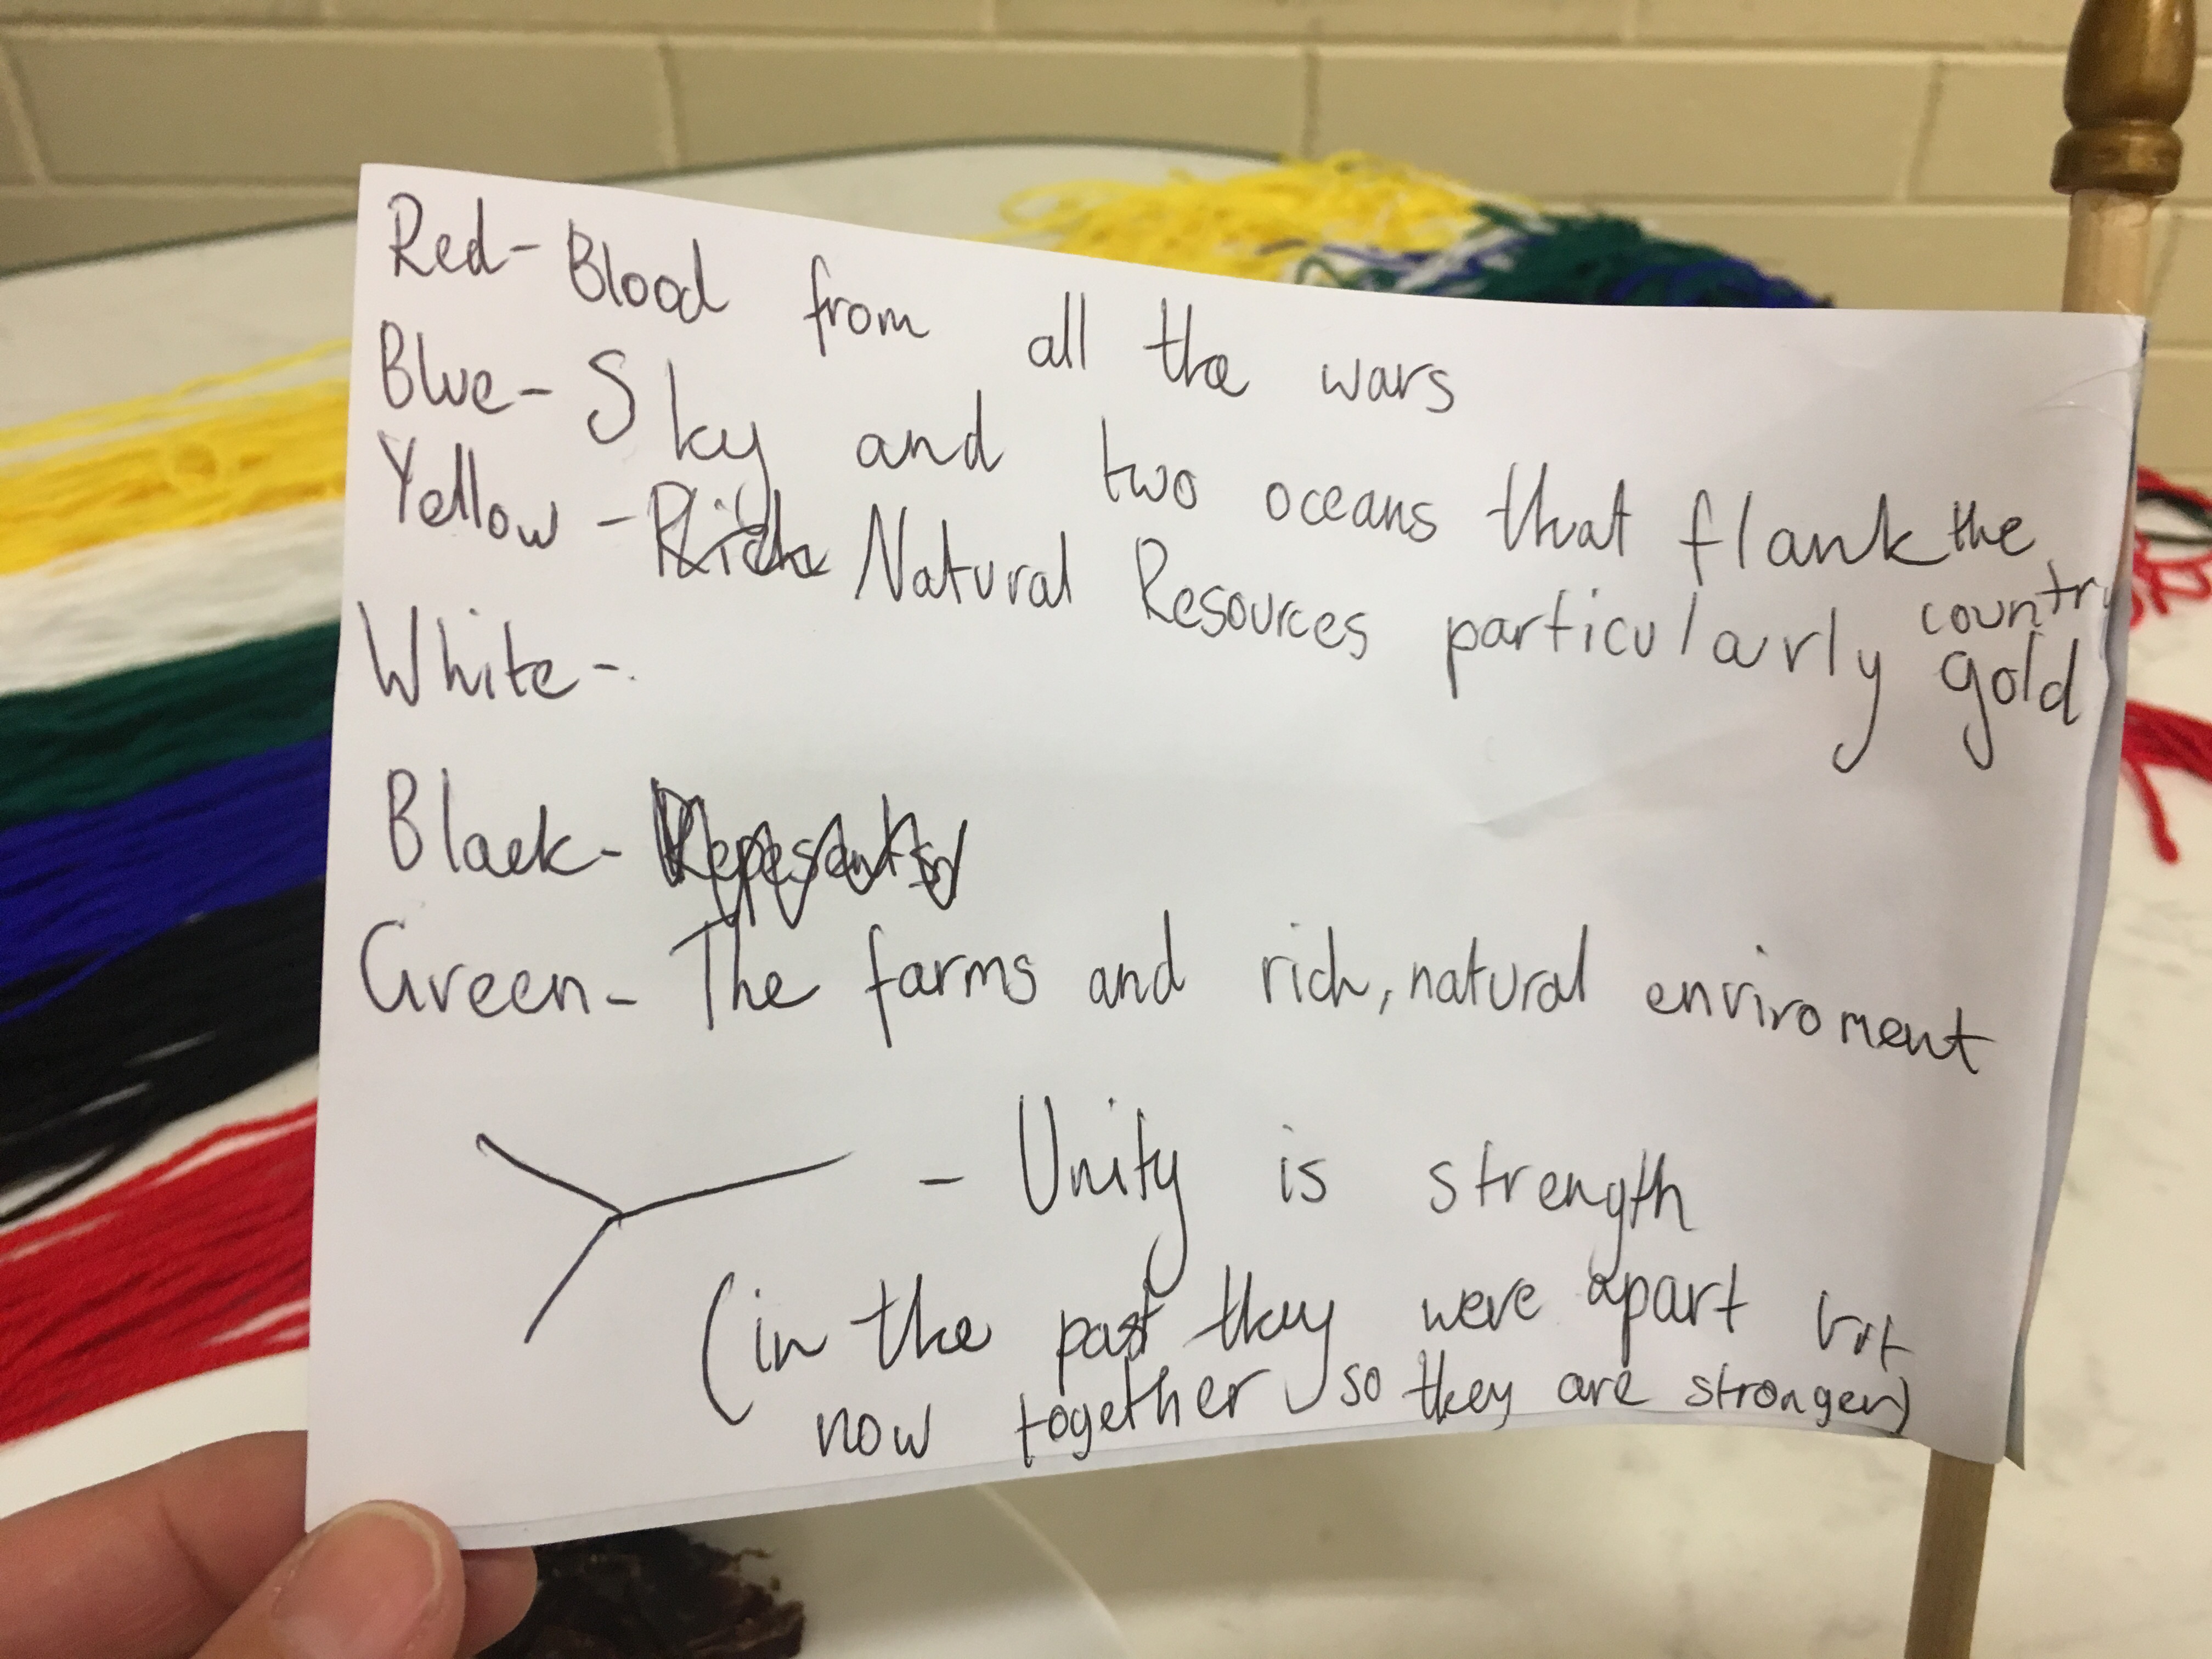 Red - Blood from all the wars
Blue - Sky and two oceans that flank the country
Yellow - Rich Natural Resources particularly gold
White -
Black -
Green - The farms and rich, natural enviroment
- Unity is strength
(in the past they were apart but
now together so they are stronger)